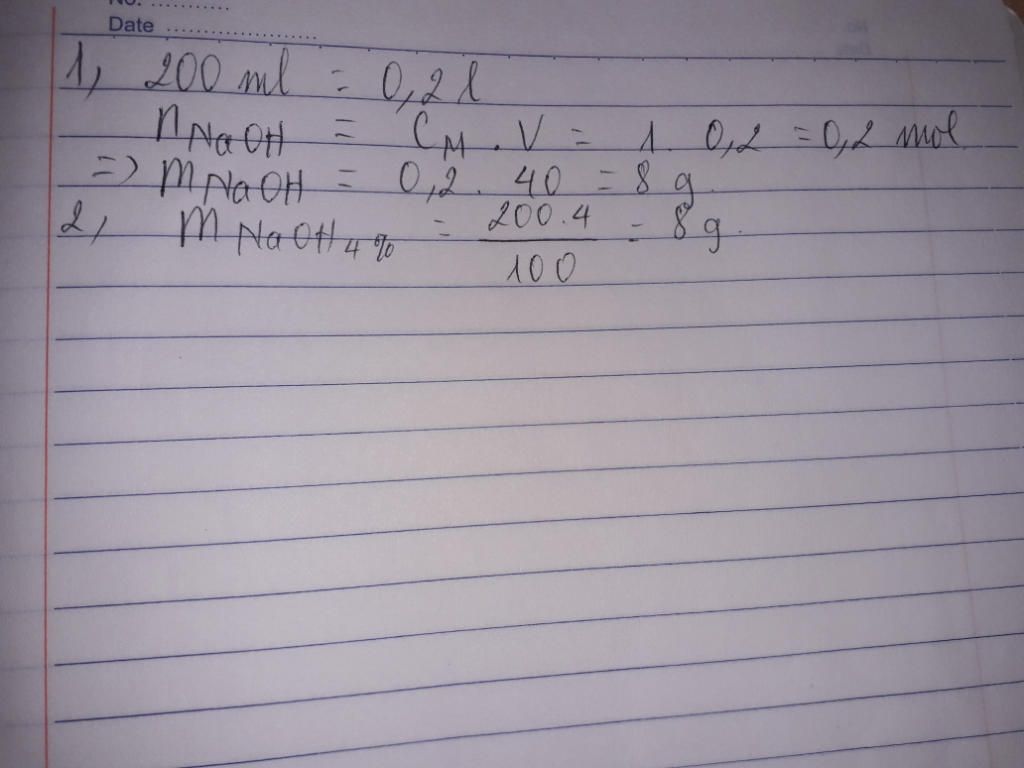 No. ............
Date .......................
1, 200 ml = 0,2 l
nNaOH = CM . V = 1. 0,2 = 0,2 mol
=> mNaOH = 0,2. 40 = 8 g.
2, mNaOH 4% = 200.4 / 100 = 8 g.